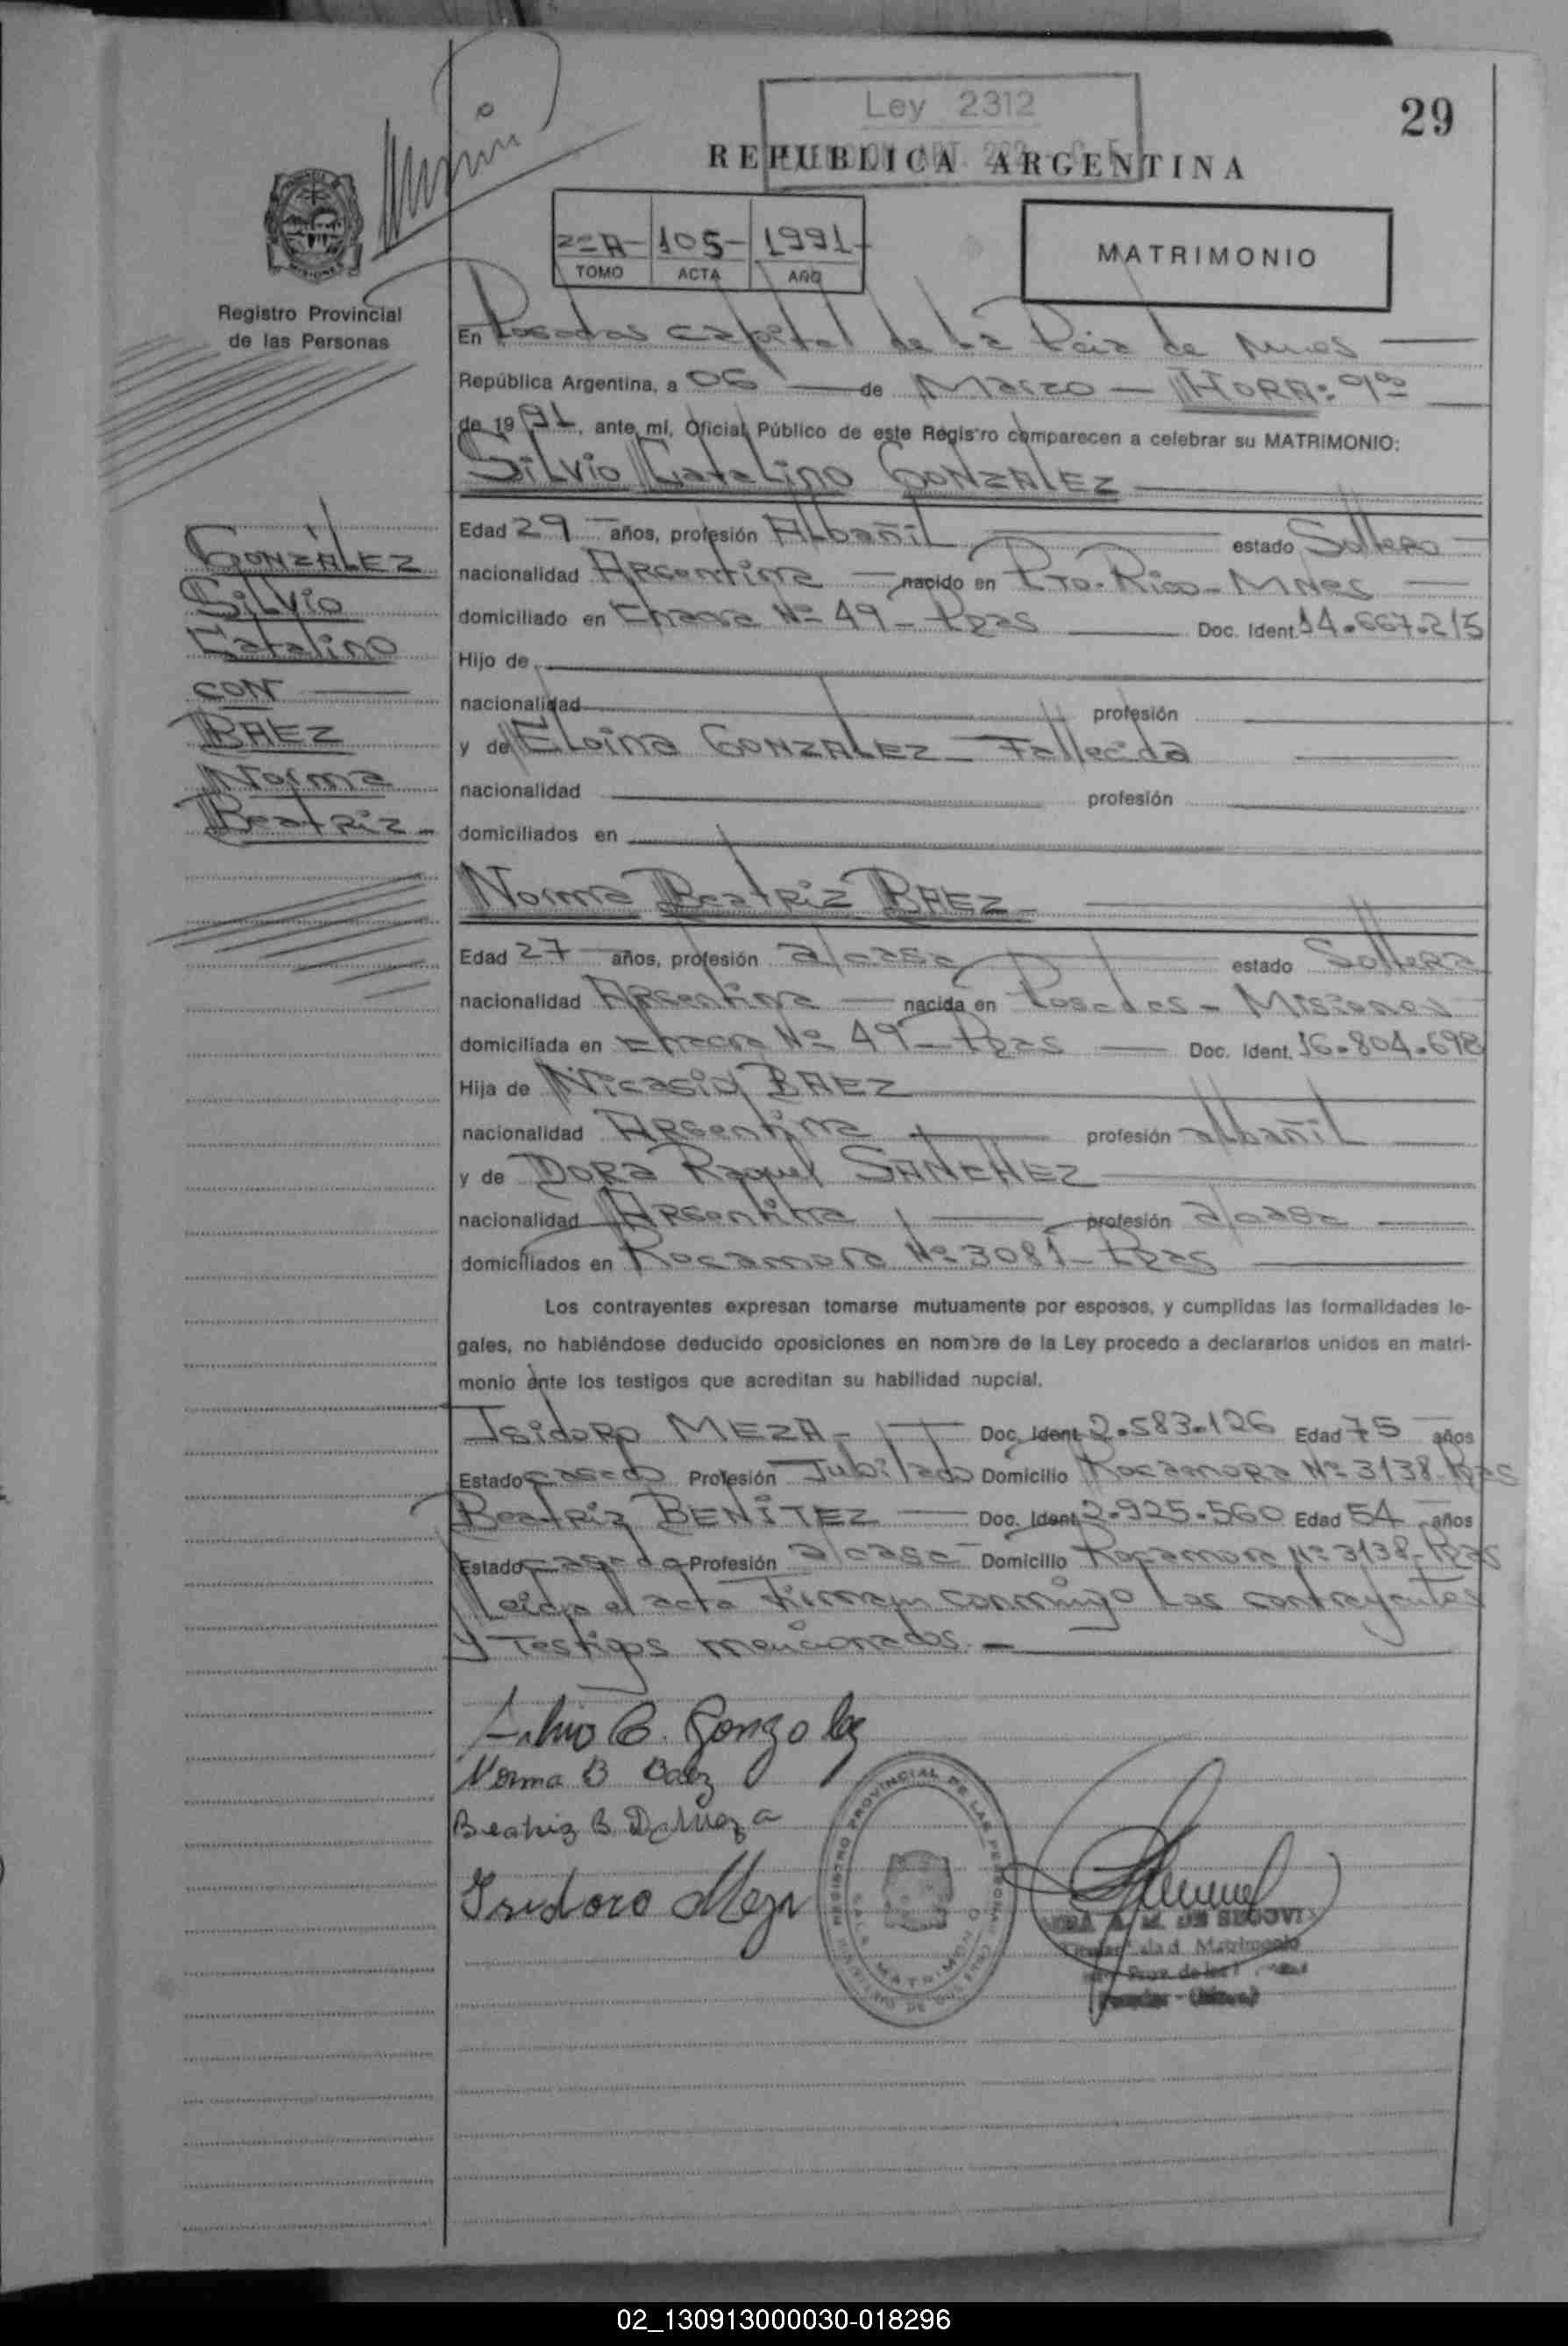 29
Ley 2312
REPUBLICA ARGENTINA
2º A- 105- 1991-
TOMO ACTA AÑO
MATRIMONIO
MISIONES
Registro Provincial
de las Personas
En Posadas Capital de La Pcia de Mnes
República Argentina, a 06 de Marzo - HORA: 9
de 1991, ante mí, Oficial Público de este Registro comparecen a celebrar su MATRIMONIO:
Silvio Catalino GONZALEZ
Edad 29 años, profesión Albañil estado Soltero
nacionalidad Argentina nacido en Pto. Rico - Mnes
domiciliado en Chacra Nº 49 - Pdas Doc. Ident. 14.667.215
Hijo de
nacionalidad profesión
y de Eloina GONZALEZ - Fallecida
nacionalidad profesión
domiciliados en
GONZÁLEZ
Silvio
Catalino
CON
BAEZ
Norma
Beatriz-
Norma Beatriz BAEZ-
Edad 27 años, profesión a/casa estado Soltera
nacionalidad Argentina nacida en Posadas - Misiones
domiciliada en Chacra Nº 49 - Pdas Doc. Ident. 16.804.698
Hija de Nicasio BAEZ
nacionalidad Argentina profesión albañil
y de Dora Raquel SANCHEZ
nacionalidad Argentina profesión a/casa
domiciliados en Rocamora Nº 3081 - Pdas
Los contrayentes expresan tomarse mutuamente por esposos, y cumplidas las formalidades le-
gales, no habiéndose deducido oposiciones en nombre de la Ley procedo a declararlos unidos en matri-
monio ante los testigos que acreditan su habilidad nupcial.
Isidoro MEZA- Doc. Ident. 2.583.126 Edad 75 años
Estado casado Profesión Jubilado Domicilio Rocamora Nº 3138 - Pdas
Beatriz BENITEZ Doc. Ident. 2.925.560 Edad 54 años
Estado casada Profesión a/casa Domicilio Rocamora Nº 3138 - Pdas
Leida el acta Firman conmigo Los contrayentes
y Testigos mencionados.-
Silvio C. Gonzalez
Norma B Baez
Beatriz B. De Meza
Isidoro Meza
REGISTRO PROVINCIAL DE LAS PERSONAS
SALA MATRIMONIO
A. M. DE SEGOVIA
Matrimonio
02_130913000030-018296